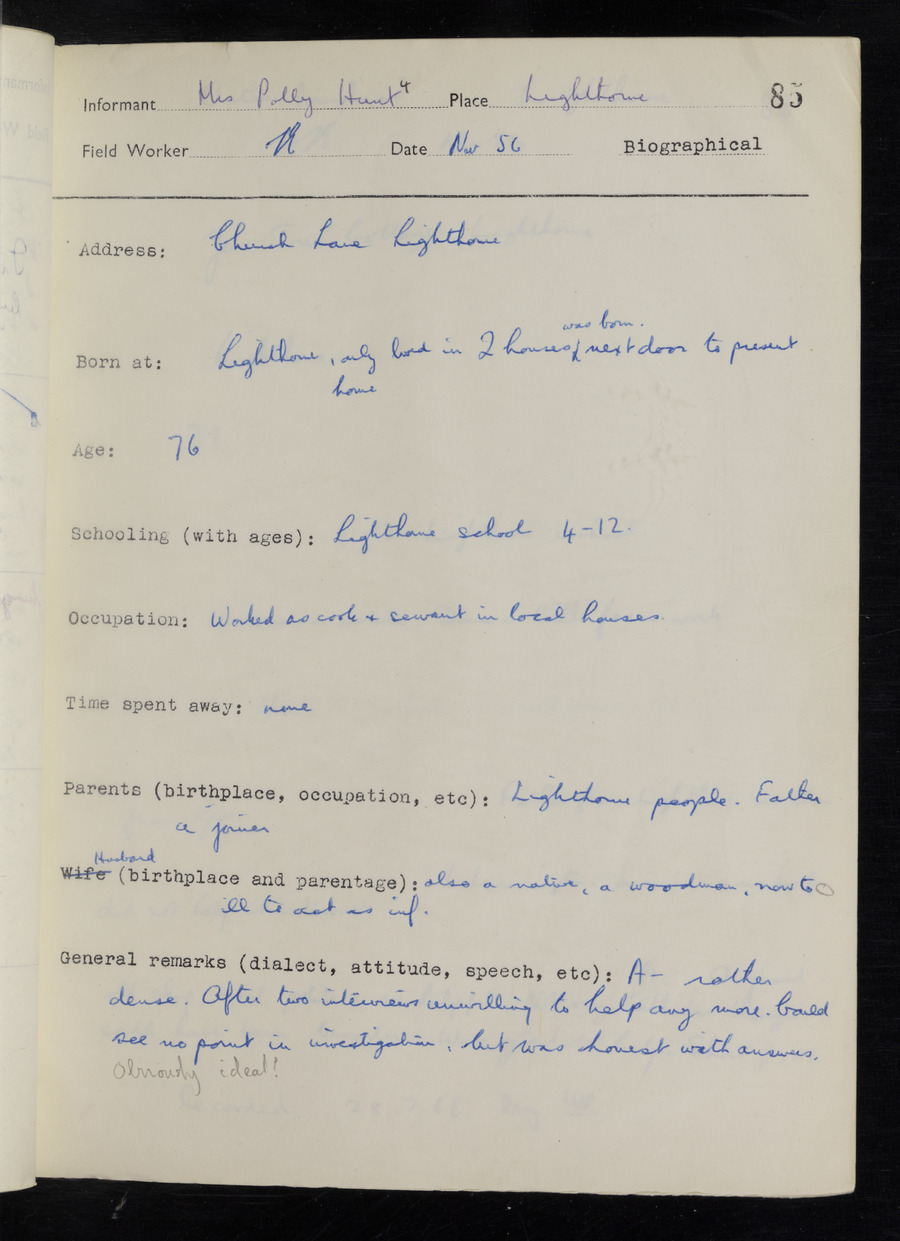 Informant Mrs Polly Hunt 4 Place Lighthorne 85
Field Worker Date Nov 56 Biographical
Address: Church Lane Lighthorne
was born.
Born at: Lighthorne, only lived in 2 houses, next door to present
home
Age: 76
Schooling (with ages): Lighthorne school 4-12.
Occupation: Worked as cook + servant in local houses.
Time spent away: none
Parents (birthplace, occupation, etc): Lighthorne people. Father
a joiner
Husband
Wife (birthplace and parentage): also a native, a woodman, now too
ill to act as inf.
General remarks (dialect, attitude, speech, etc): A- rather
dense. After two interviews unwilling to help any more. Could
see no point in investigation, but was honest with answers.
Obviously ideal!